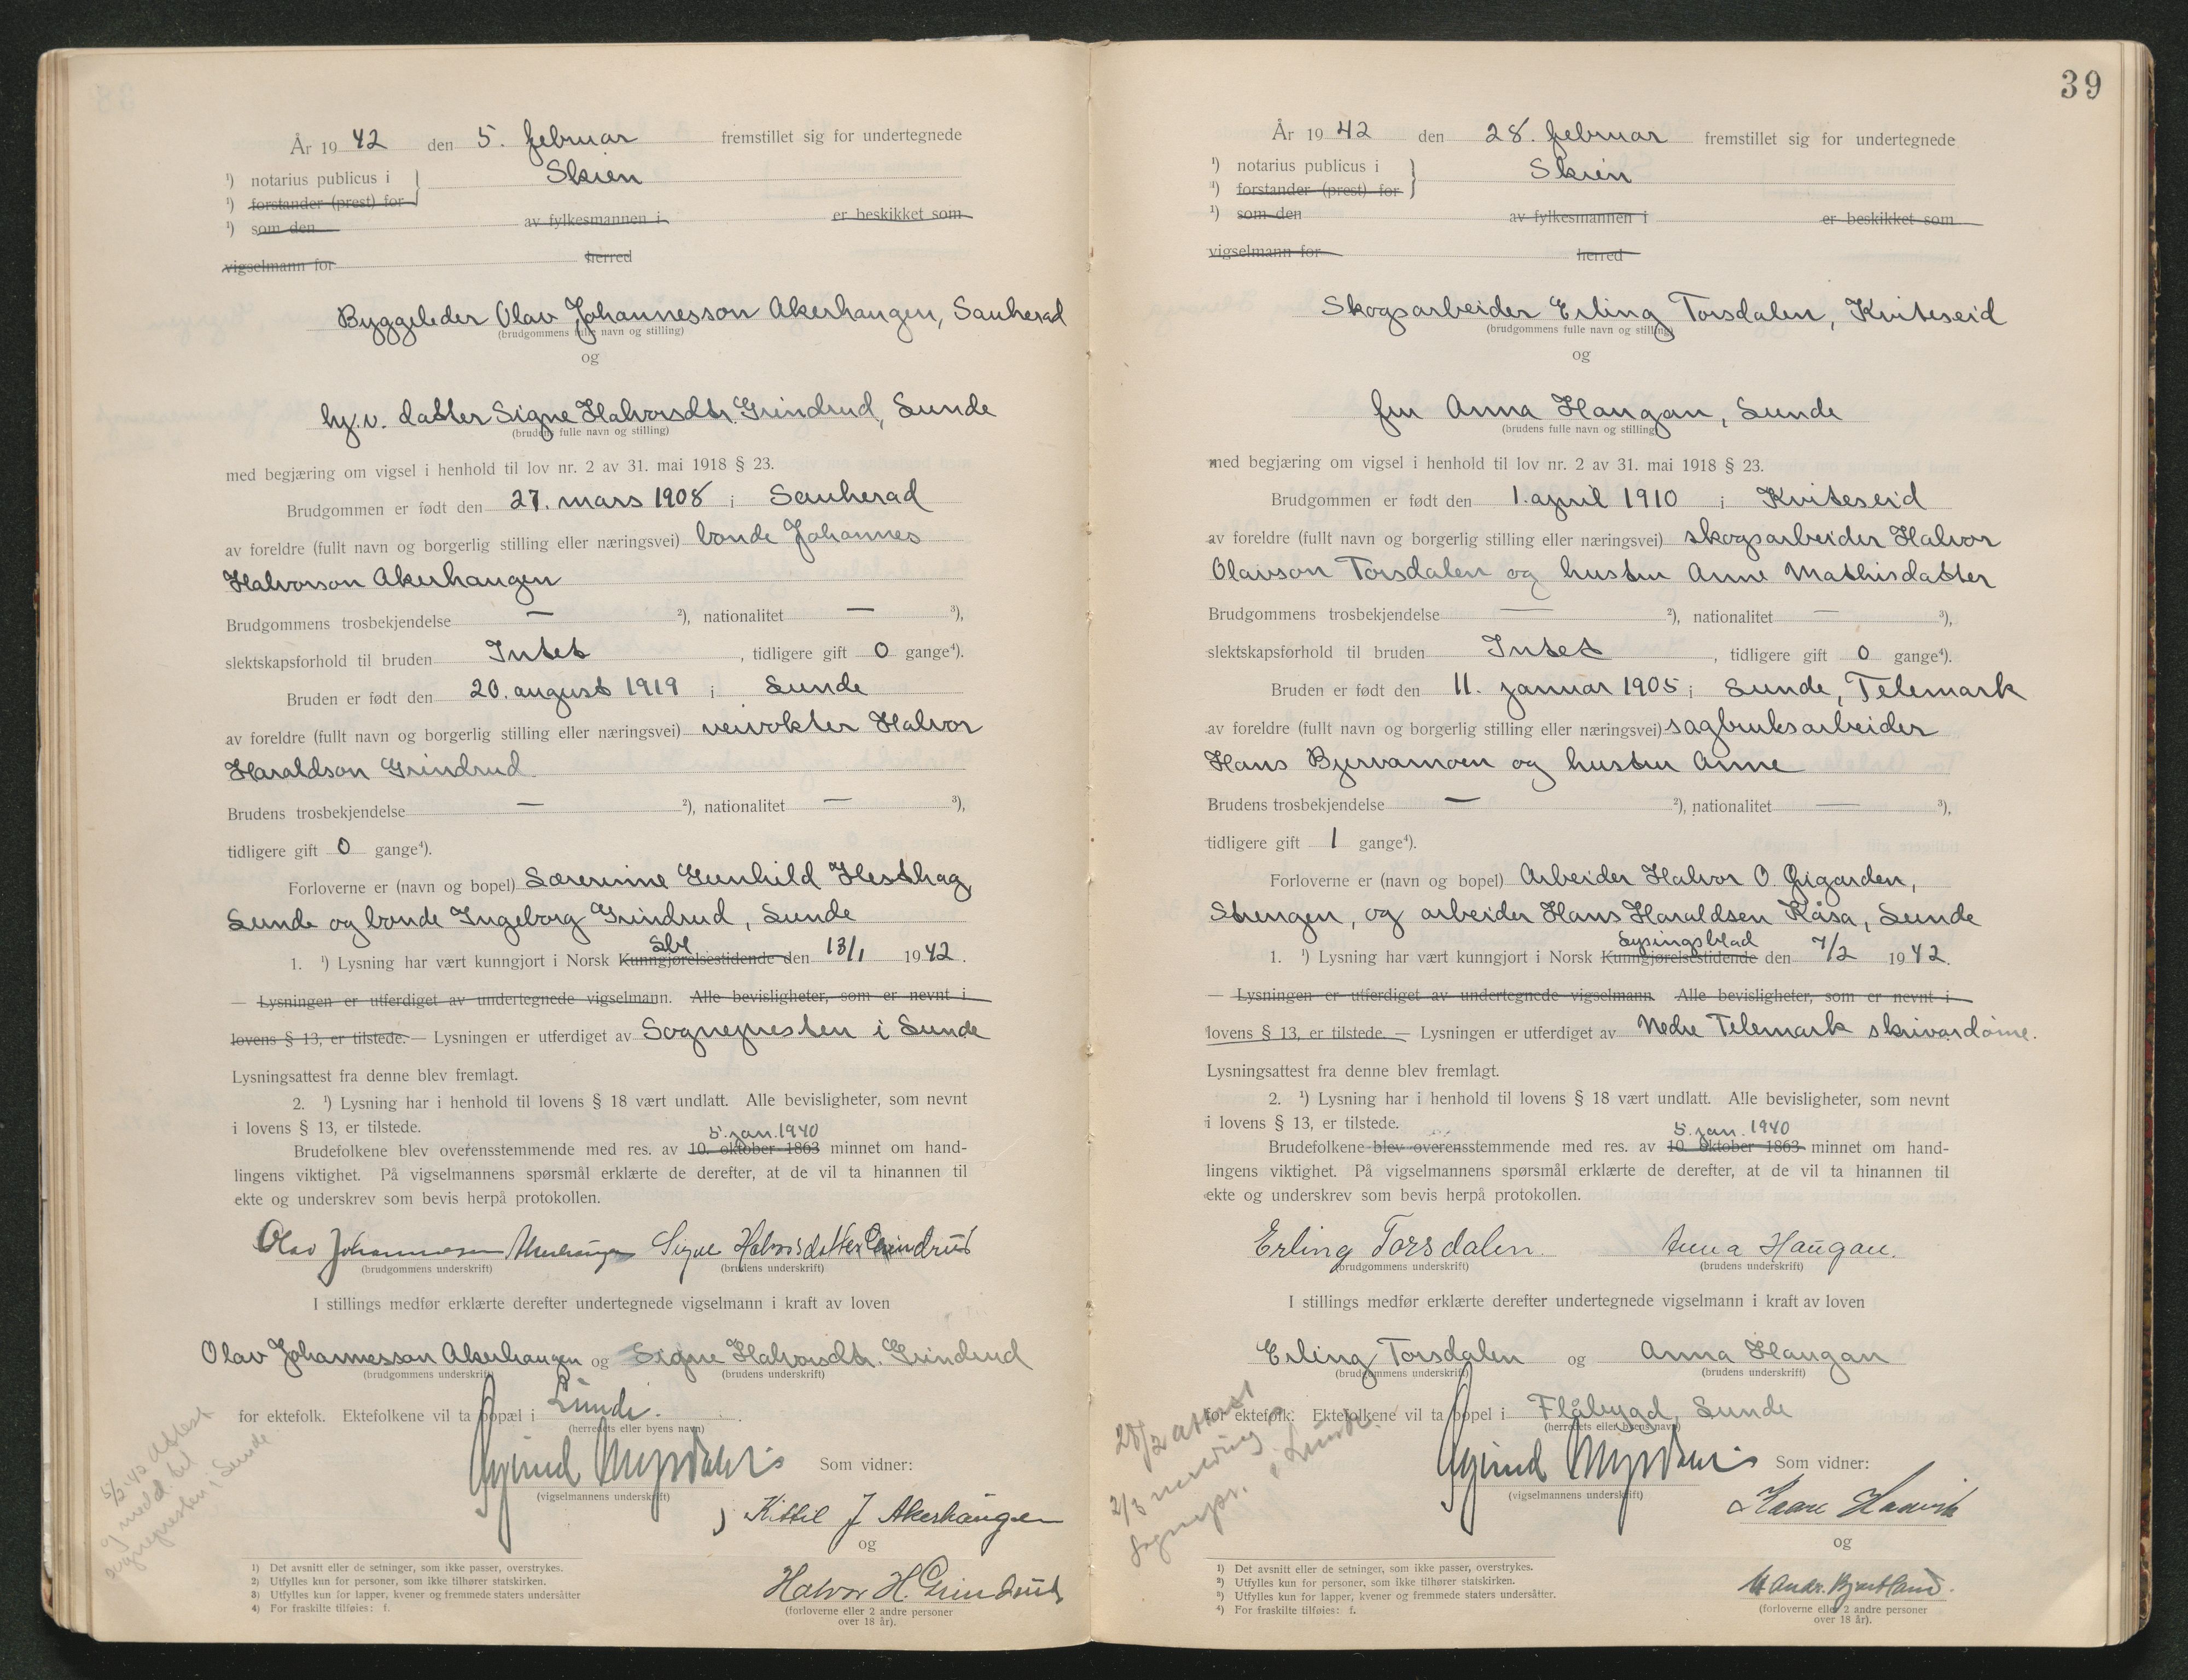 År 19 42 den 5. februar fremstillet sig for undertegnede
¹) notarius publicus i Skien
¹) forstander (prest) for
¹) som den av fylkesmannen i er beskikket som
vigselmann for herred
Byggeleder Olav Johannesson Akerhaugen, Sauherad
(brudgommens fulle navn og stilling)
og
hj.v. datter Signe Halvorsdtr. Grindrud, Lunde
(brudens fulle navn og stilling)
med begjæring om vigsel i henhold til lov nr. 2 av 31. mai 1918 § 23.
Brudgommen er født den 27. mars 1908 i Sauherad
av foreldre (fullt navn og borgerlig stilling eller næringsvei) bonde Johannes
Halvorson Akerhaugen
Brudgommens trosbekjendelse — ²), nationalitet — ³),
slektskapsforhold til bruden Intet, tidligere gift 0 gange⁴).
Bruden er født den 20. august 1919 i Lunde
av foreldre (fullt navn og borgerlig stilling eller næringsvei) veivokter Halvor
Haraldson Grindrud
Brudens trosbekjendelse — ²), nationalitet — ³),
tidligere gift 0 gange⁴).
Forloverne er (navn og bopel) Lærerinne Gunhild Hesthag,
Lunde og bonde Ingeborg Grindrud, Lunde
Lbl
1. ¹) Lysning har vært kunngjort i Norsk Kunngjørelsestidende den 13/1 1942.
— Lysningen er utferdiget av undertegnede vigselmann. Alle bevisligheter, som er nevnt i
lovens § 13, er tilstede. — Lysningen er utferdiget av Sognepresten i Lunde
Lysningsattest fra denne blev fremlagt.
2. ¹) Lysning har i henhold til lovens § 18 vært undlatt. Alle bevisligheter, som nevnt
i lovens § 13, er tilstede.
5. jan. 1940
Brudefolkene blev overensstemmende med res. av 10. oktober 1863 minnet om hand-
lingens viktighet. På vigselmannens spørsmål erklærte de derefter, at de vil ta hinannen til
ekte og underskrev som bevis herpå protokollen.
Olav Johannesson Akerhaugen Signe Halvorsdatter Grindrud
(brudgommens underskrift) (brudens underskrift)
I stillings medfør erklærte derefter undertegnede vigselmann i kraft av loven
Olav Johannesson Akerhaugen og Signe Halvorsdtr. Grindrud
(brudgommens underskrift) (brudens underskrift)
for ektefolk. Ektefolkene vil ta bopæl i Lunde.
(herredets eller byens navn)
Øyvind Myrdahl Som vidner:
(vigselmannens underskrift)
Kittil J Akerhaugen
og
Halvor H. Grindrud
(forloverne eller 2 andre personer
over 18 år).
5/2.42 Attest
og medd. til
sognepresten i Lunde.
1) Det avsnitt eller de setninger, som ikke passer, overstrykes.
2) Utfylles kun for personer, som ikke tilhører statskirken.
3) Utfylles kun for lapper, kvener og fremmede staters undersåtter
4) For fraskilte tilføies: f.
39
År 19 42 den 28. februar fremstillet sig for undertegnede
¹) notarius publicus i Skien
¹) forstander (prest) for
¹) som den av fylkesmannen i er beskikket som
vigselmann for herred
Skogsarbeider Erling Torsdalen, Kviteseid
(brudgommens fulle navn og stilling)
og
fru Anna Haugan, Lunde
(brudens fulle navn og stilling)
med begjæring om vigsel i henhold til lov nr. 2 av 31. mai 1918 § 23.
Brudgommen er født den 1. april 1910 i Kviteseid
av foreldre (fullt navn og borgerlig stilling eller næringsvei) skogsarbeider Halvor
Olavson Torsdalen og hustru Anne Mathisdatter
Brudgommens trosbekjendelse — ²), nationalitet — ³),
slektskapsforhold til bruden Intet, tidligere gift 0 gange⁴).
Bruden er født den 11. januar 1905 i Lunde, Telemark
av foreldre (fullt navn og borgerlig stilling eller næringsvei) sagbruksarbeider
Hans Bjervamoen og hustru Anne
Brudens trosbekjendelse — ²), nationalitet — ³),
tidligere gift 1 gange⁴).
Forloverne er (navn og bopel) Arbeider Halvor O. Gigarden,
Strengen, og arbeider Hans Haraldsen Kåsa, Lunde
Lysingsblad
1. ¹) Lysning har vært kunngjort i Norsk Kunngjørelsestidende den 7/2 1942.
— Lysningen er utferdiget av undertegnede vigselmann Alle bevisligheter, som er nevnt i
lovens § 13, er tilstede. — Lysningen er utferdiget av Nedre Telemark skrivardöme.
Lysningsattest fra denne blev fremlagt.
2. ¹) Lysning har i henhold til lovens § 18 vært undlatt. Alle bevisligheter, som nevnt
i lovens § 13, er tilstede.
5. jan. 1940
Brudefolkene blev overensstemmende med res. av 10. oktober 1863 minnet om hand-
lingens viktighet. På vigselmannens spørsmål erklærte de derefter, at de vil ta hinannen til
ekte og underskrev som bevis herpå protokollen.
Erling Torsdalen. Anna Haugan.
(brudgommens underskrift) (brudens underskrift)
I stillings medfør erklærte derefter undertegnede vigselmann i kraft av loven
Erling Torsdalen og Anna Haugan
(brudgommens underskrift) (brudens underskrift)
for ektefolk. Ektefolkene vil ta bopel i Flåbygd, Lunde
(herredets eller byens navn)
Øyvind Myrdahl Som vidner:
(vigselmannens underskrift)
Kaare Haavik
og
(forloverne eller 2 andre personer
over 18 år).
28/2 attest
2/3 melding
sognepr. i Lunde.
¹) Det avsnitt eller de setninger, som ikke passer, overstrykes.
²) Utfylles kun for personer, som ikke tilhører statskirken.
³) Utfylles kun for lapper, kvener og fremmede staters undersåtter.
⁴) For fraskilte tilføies: f.